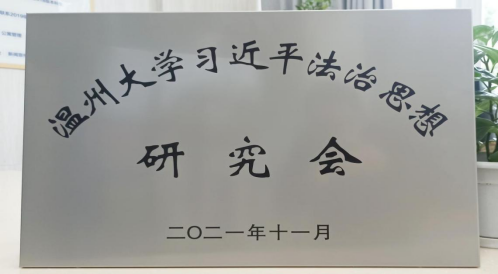 温州大学习近平法治思想
研究会
二〇二一年十一月